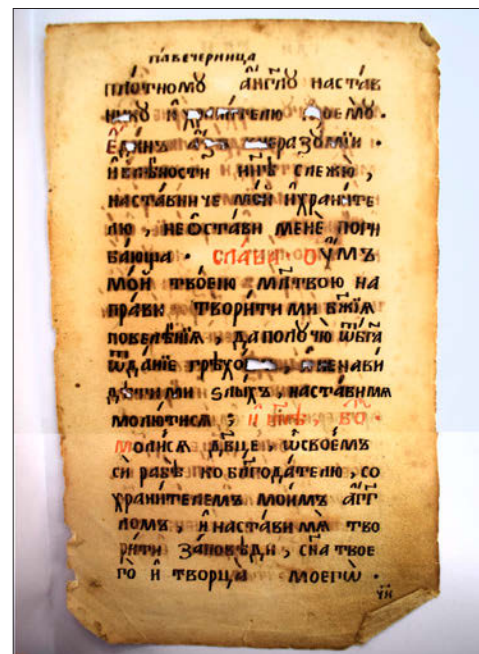 павечерница
плотномꙋ а҆нг҃лꙋ настав
никꙋ и҆ хранителю моемꙋ ·
Е҆динъ
и҆ лѣности нн҃ѣ слежю ,
наставниче мой и҆ храните
лю , не ѡстави мене̑ поги
бающа · слава · Оу҆мъ
мой твоею мл҃твою на
прави творити ми бж҃їѧ
повелѣнїѧ , да полꙋчю ѿ бг҃а
ѿданїе грѣхо , ненави
дѣти ми ѕлыхъ , настави мѧ
молютисѧ ; и҆ нн҃ѣ , бо ·
молисѧ дв҃це ѡ своемъ
си рабѣ ко бл҃годателю , со
хранителемъ моимъ а҆гг҃
ломъ , и҆ настави мѧ тво
рити заповѣди , сн҃а твое
го и҆ творца моегѡ ·
ун